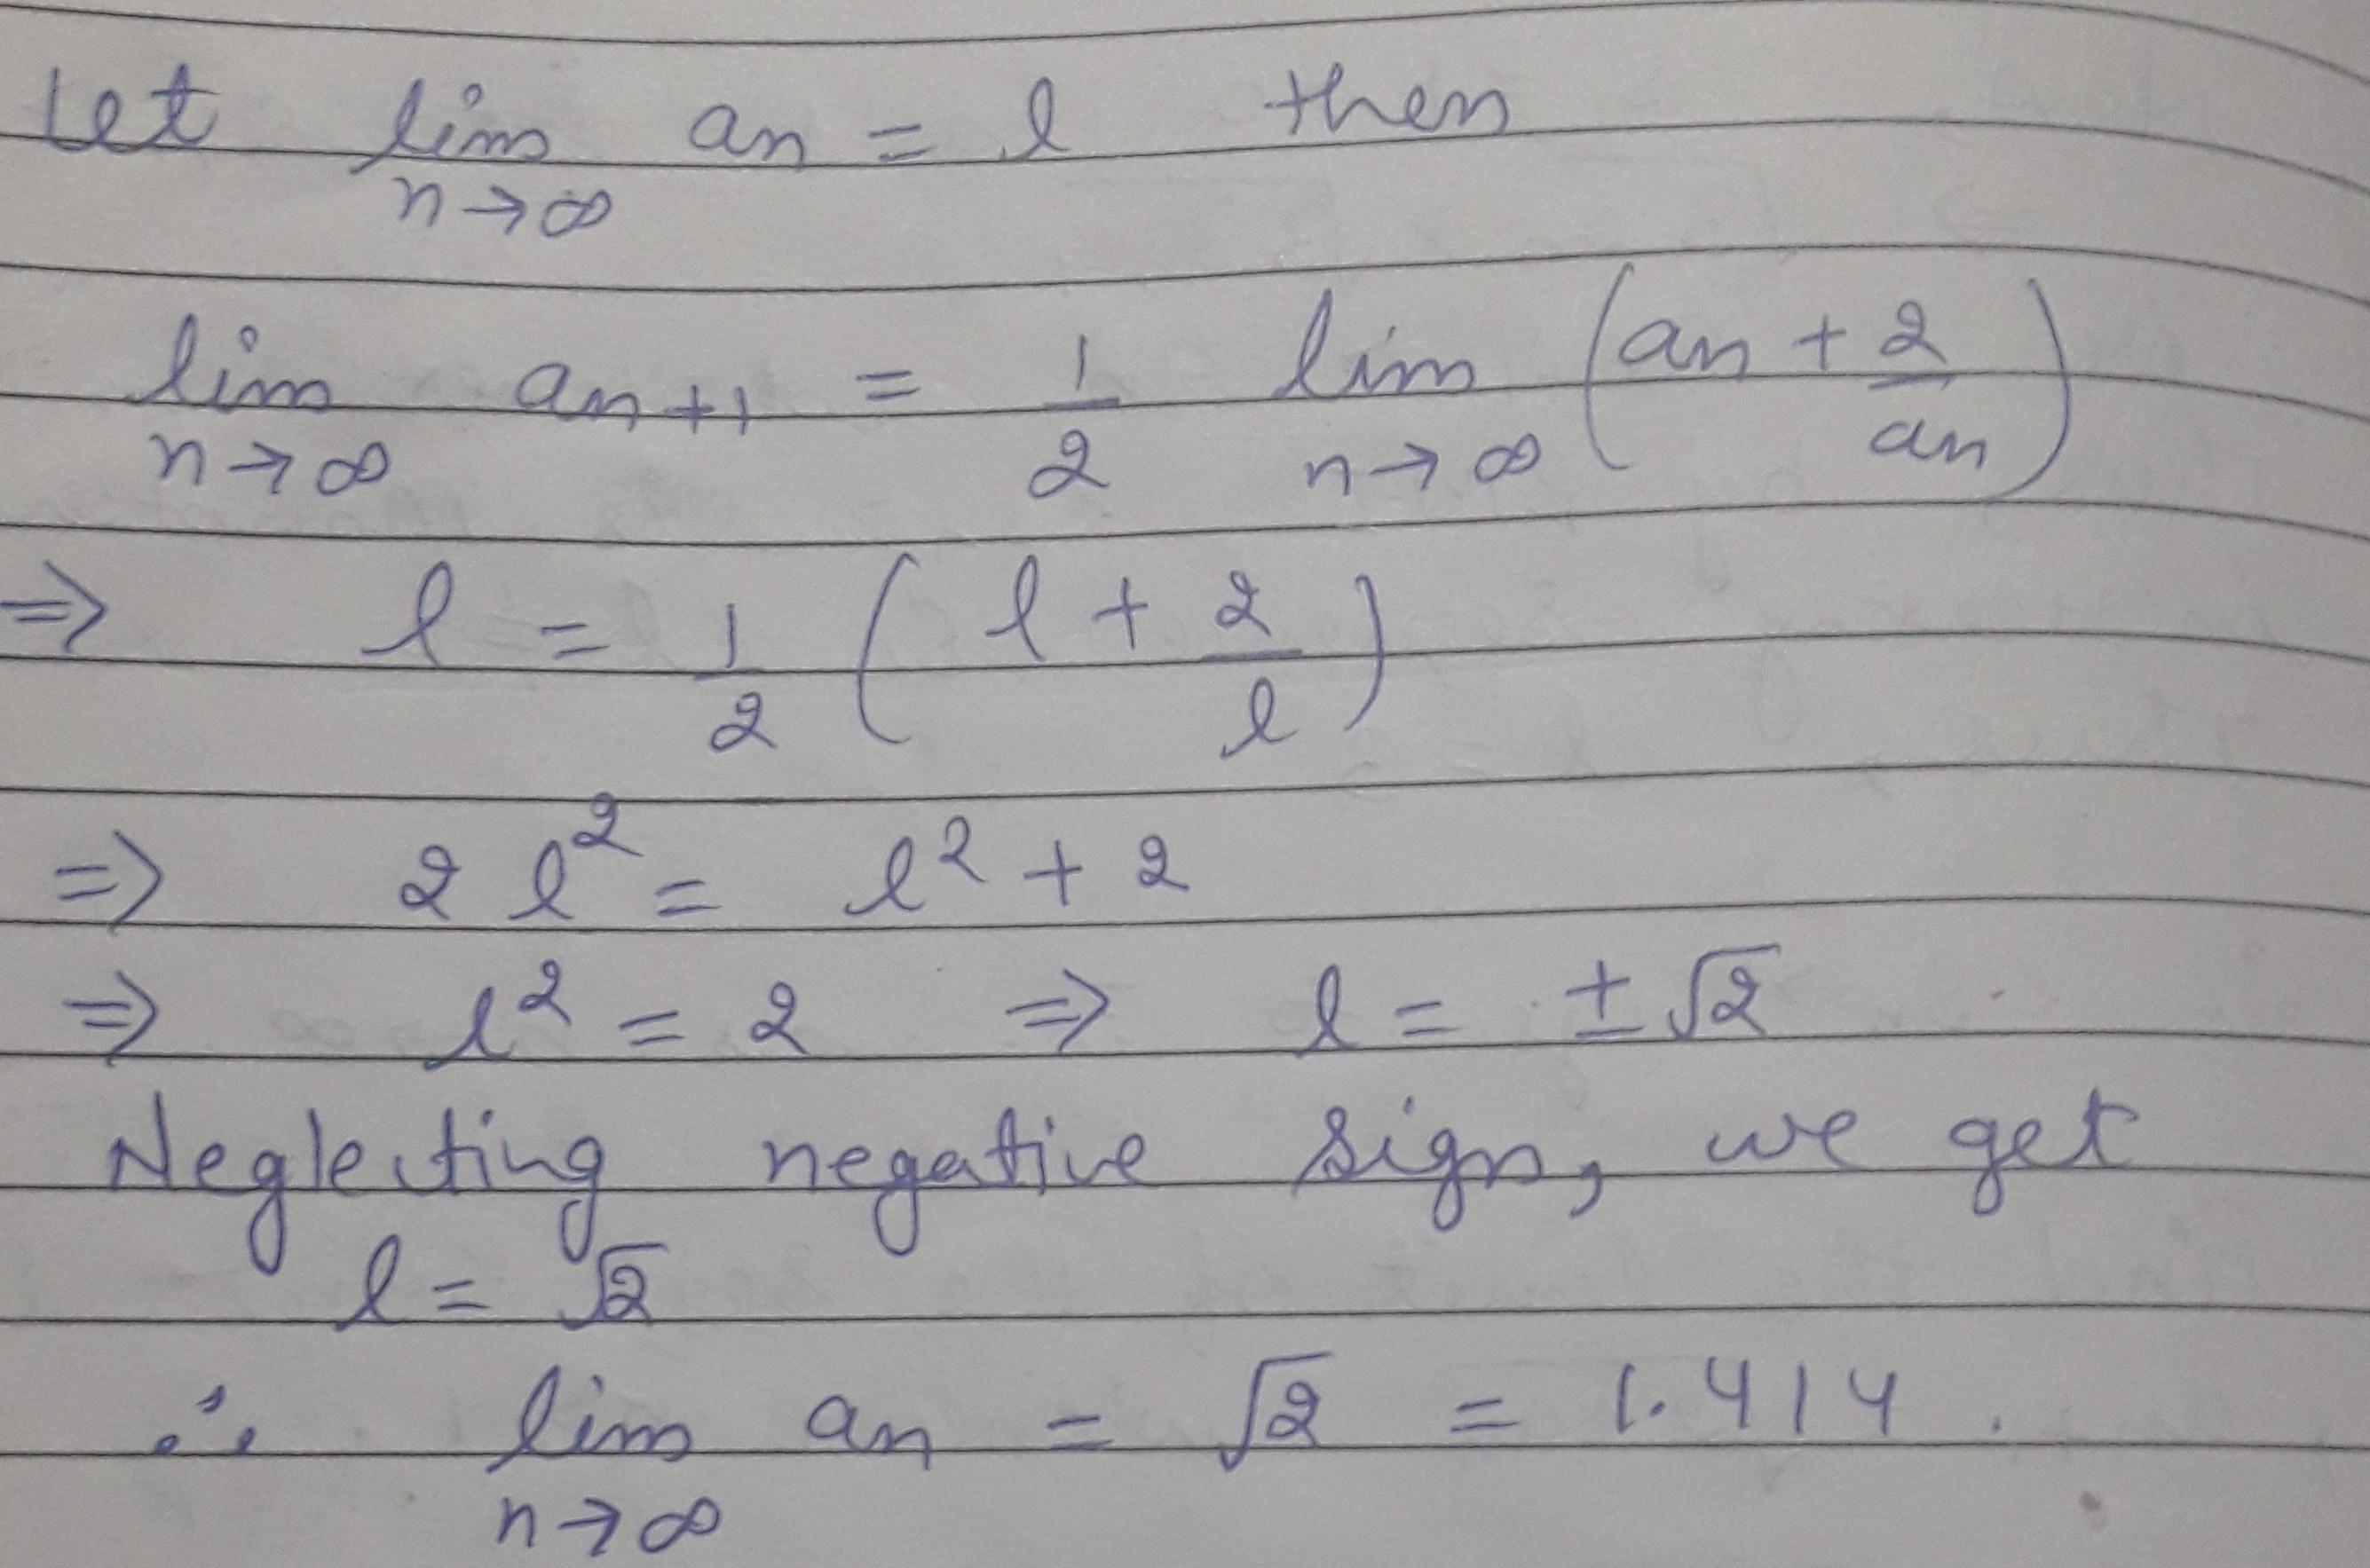 Let lim n→∞ an = l then
lim n→∞ an+1 = 1/2 lim n→∞ (an + 2/an)
⇒ l = 1/2 (l + 2/l)
⇒ 2 l² = l² + 2
⇒ l² = 2 ⇒ l = ±√2
Neglecting negative sign, we get
l = √2
∴ lim n→∞ an = √2 = 1.414.